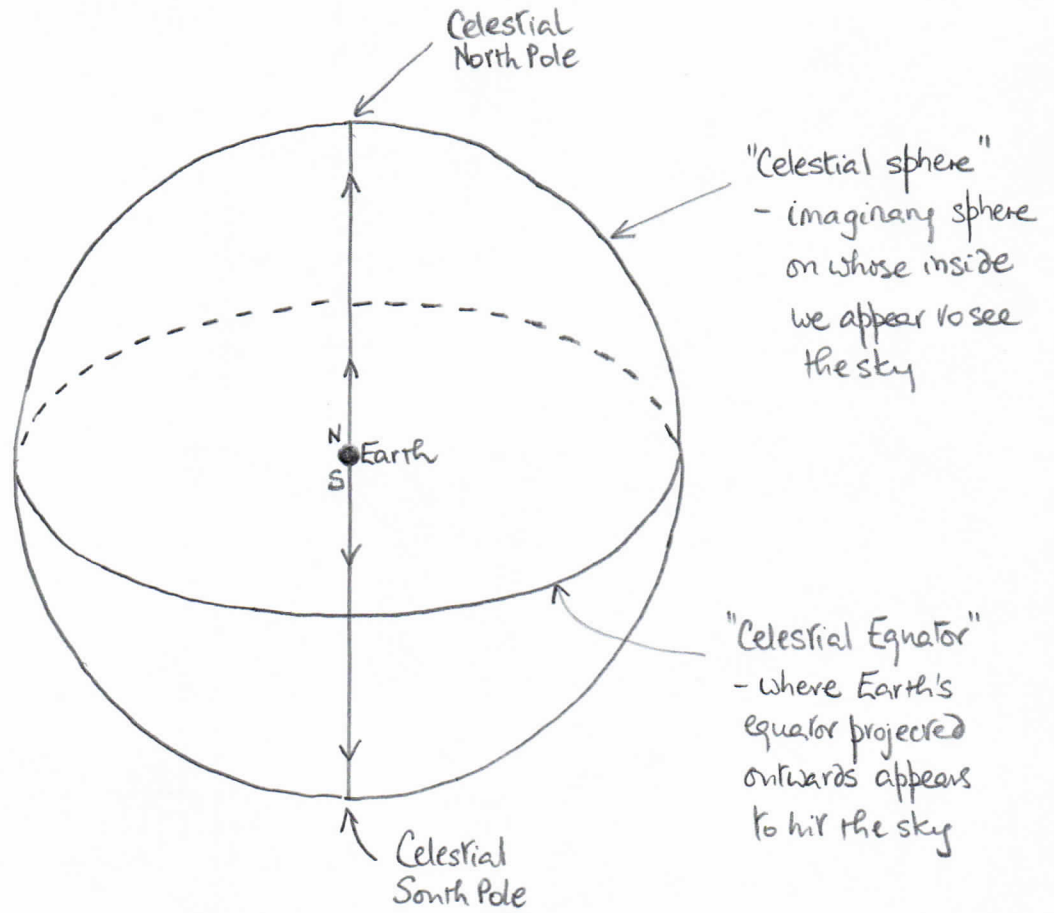 Celestial
North Pole
"Celestial sphere"
- imaginary sphere
on whose inside
we appear to see
the sky
N
Earth
S
"Celestial Equator"
- where Earth's
equator projected
outwards appears
to hit the sky
Celestial
South Pole